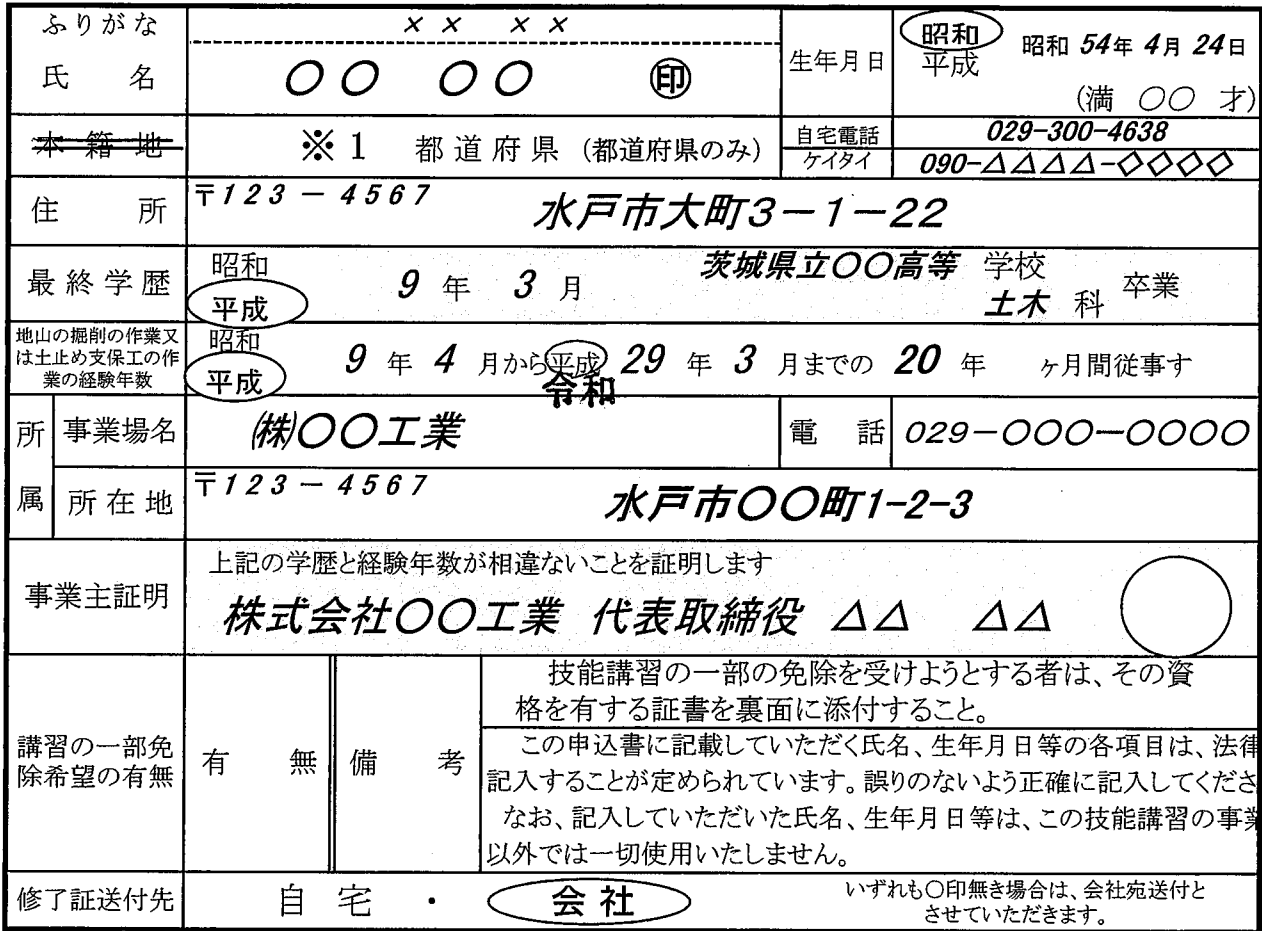 ふりがな ×× ××
氏 名 〇〇 〇〇 ㊞
生年月日 昭和 平成 昭和 54年 4月 24日
(満 〇〇 才)
本籍地 ※1 都道府県 (都道府県のみ)
自宅電話 029-300-4638
ケイタイ 090-△△△△-◇◇◇◇
住 所 〒123-4567 水戸市大町3-1-22
最終学歴 昭和 平成 9年 3月 茨城県立〇〇高等 学校 土木 科 卒業
地山の掘削の作業又
は土止め支保工の作
業の経験年数
昭和
平成 9年 4月から 平成 29年 3月までの 20年 ヶ月間従事す
令和
所属 事業場名 ㈱〇〇工業 電 話 029-〇〇〇-〇〇〇〇
所在地 〒123-4567 水戸市〇〇町1-2-3
事業主証明 上記の学歴と経験年数が相違ないことを証明します
株式会社〇〇工業 代表取締役 △△ △△
講習の一部免
除希望の有無
有 無 備 考
技能講習の一部の免除を受けようとする者は、その資
格を有する証書を裏面に添付すること。
この申込書に記載していただく氏名、生年月日等の各項目は、法律
記入することが定められています。誤りのないよう正確に記入してくださ
なお、記入していただいた氏名、生年月日等は、この技能講習の事業
以外では一切使用いたしません。
修了証送付先 自 宅 ・ 会 社
いずれも〇印無き場合は、会社宛送付と
させていただきます。